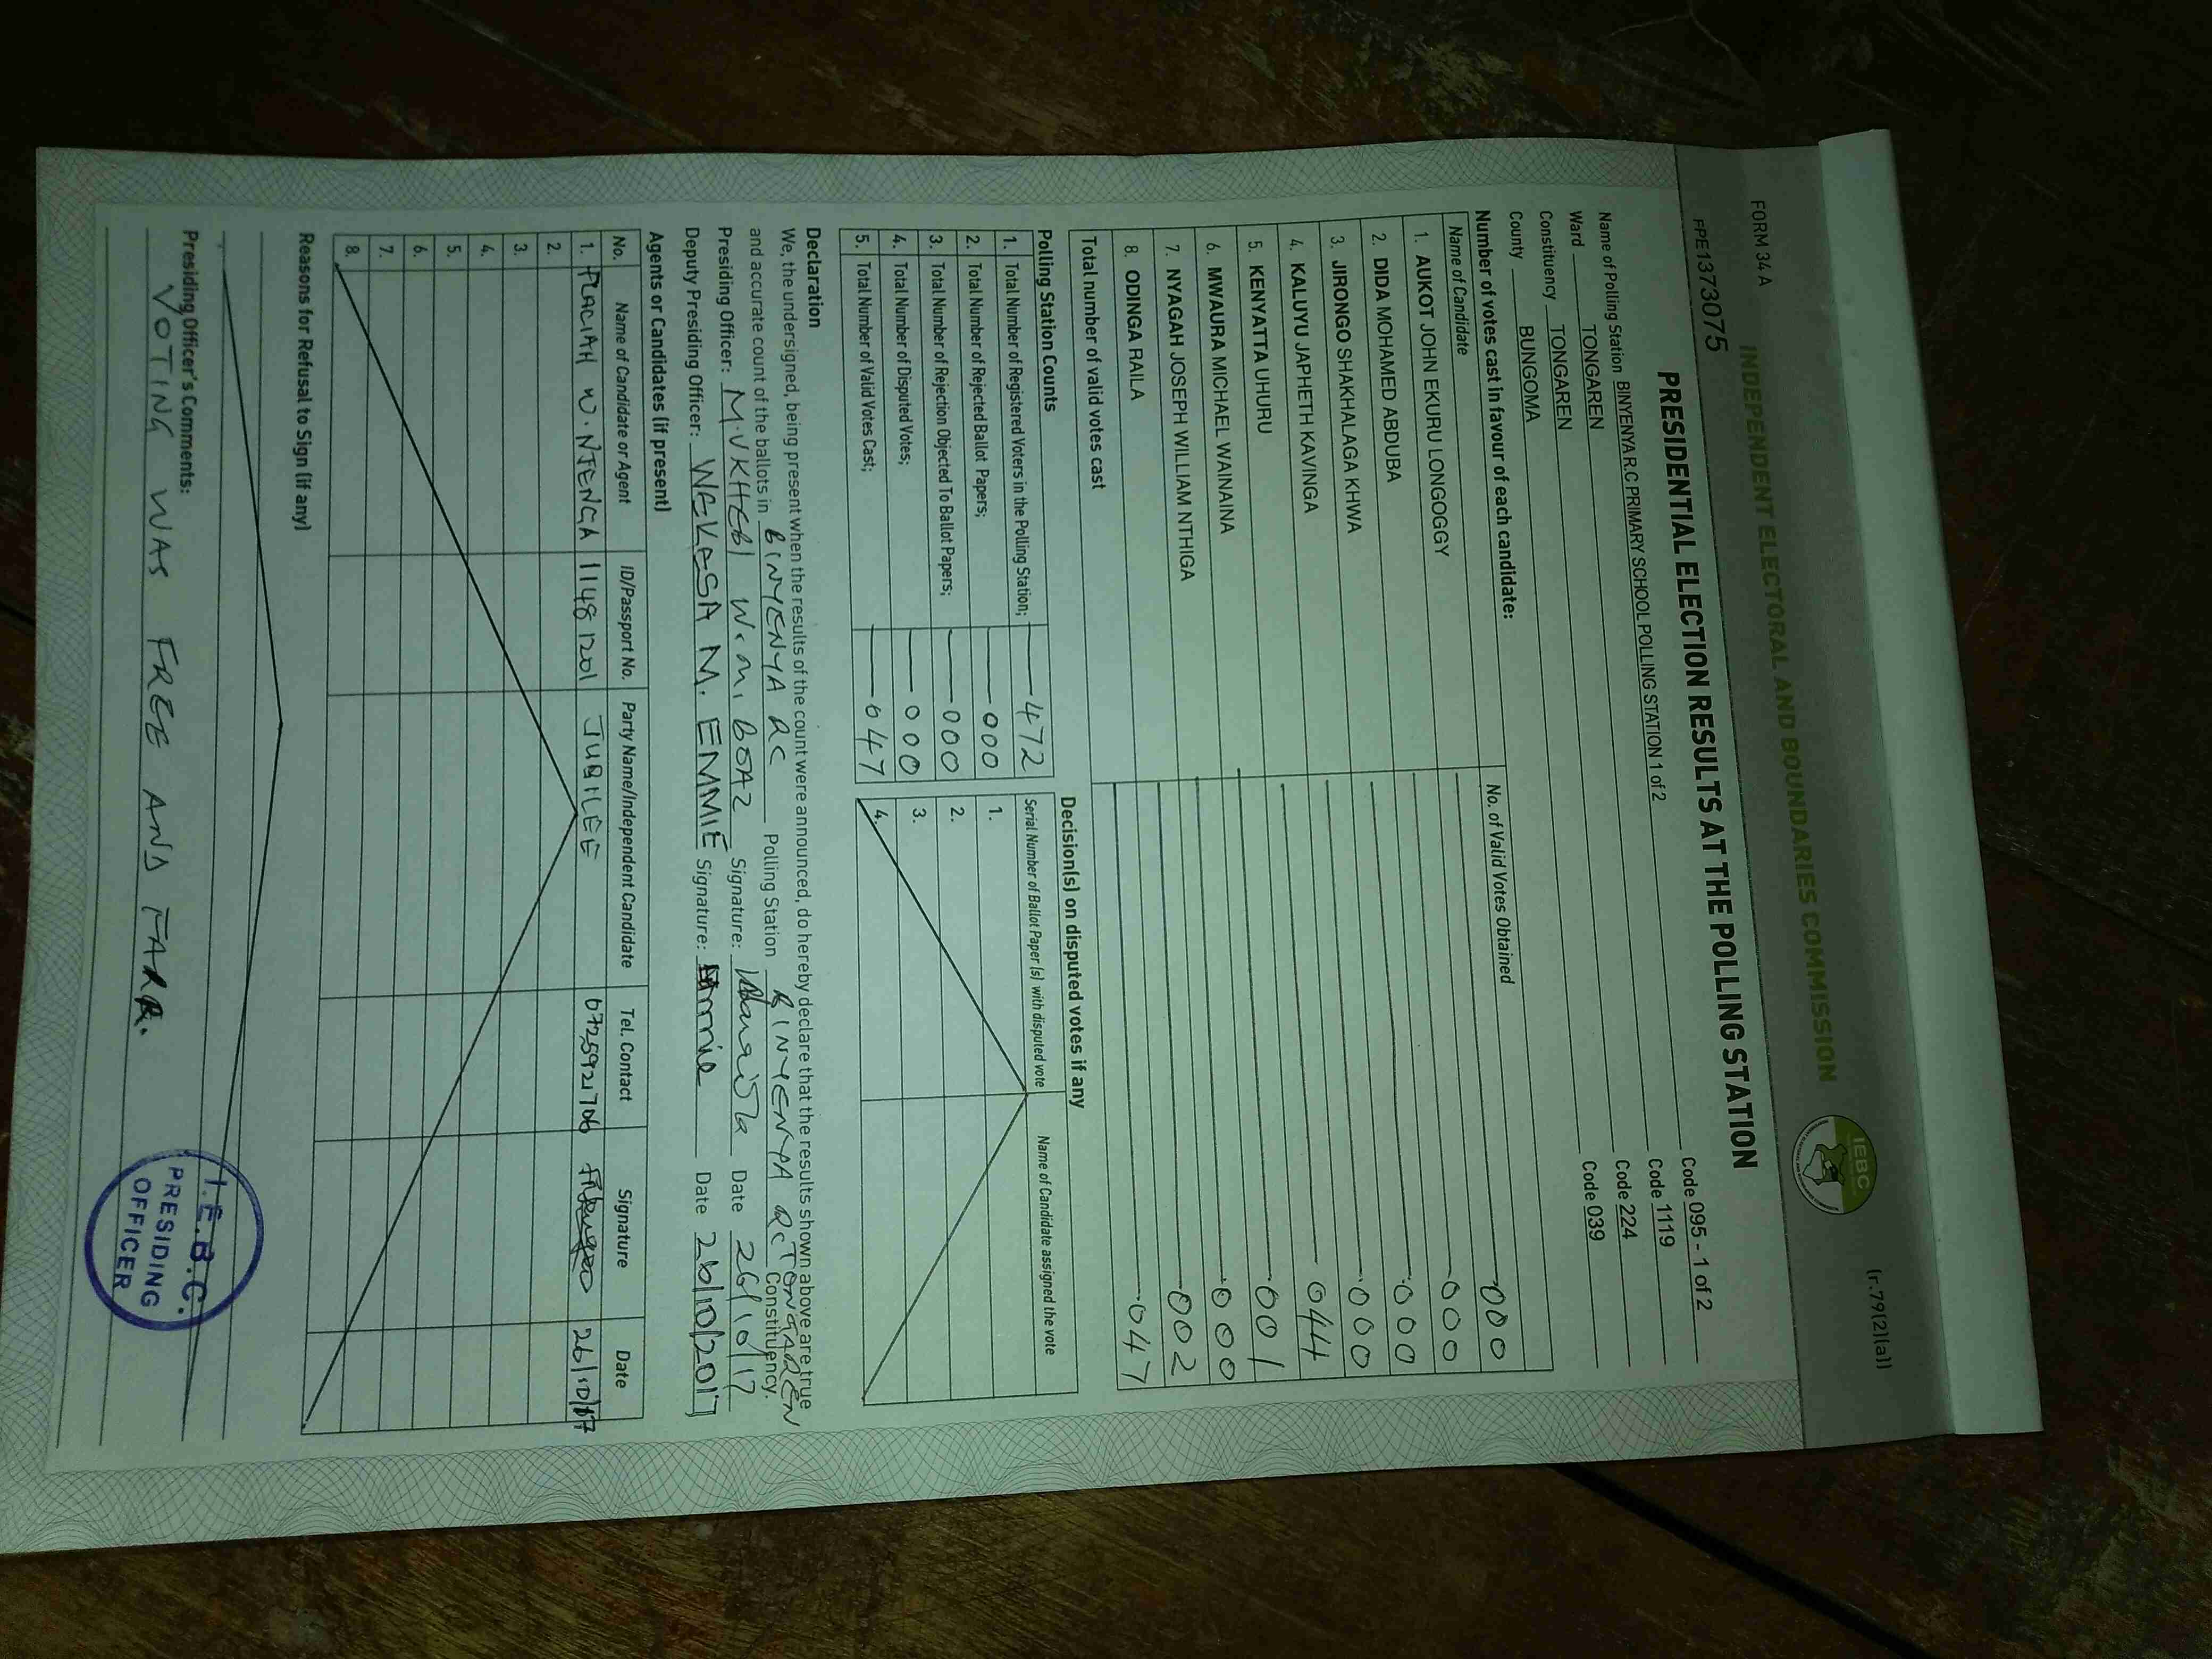 FORM 34 A
(r.79(2)(a))
INDEPENDENT ELECTORAL AND BOUNDARIES COMMISSION
IEBC
PPE1373075
PRESIDENTIAL ELECTION RESULTS AT THE POLLING STATION
Name of Polling Station BINYENYA R.C PRIMARY SCHOOL POLLING STATION 1 of 2 Code 095 - 1 of 2
Ward TONGAREN Code 1119
Constituency TONGAREN Code 224
County BUNGOMA Code 039
Number of votes cast in favour of each candidate:
Name of Candidate No. of Valid Votes Obtained
1. AUKOT JOHN EKURU LONGOGGY 000
2. DIDA MOHAMED ABDUBA 000
3. JIRONGO SHAKHALAGA KHWA 000
4. KALUYU JAPHETH KAVINGA 000
5. KENYATTA UHURU 044
6. MWAURA MICHAEL WAINAINA 001
7. NYAGAH JOSEPH WILLIAM NTHIGA 000
8. ODINGA RAILA 002
Total number of valid votes cast 047
Polling Station Counts
1. Total Number of Registered Voters in the Polling Station; 472
2. Total Number of Rejected Ballot Papers; 000
3. Total Number of Rejection Objected To Ballot Papers; 000
4. Total Number of Disputed Votes; 000
5. Total Number of Valid Votes Cast; 047
Decision(s) on disputed votes if any
Serial Number of Ballot Paper (s) with disputed vote Name of Candidate assigned the vote
1.
2.
3.
4.
Declaration
We, the undersigned, being present when the results of the count were announced, do hereby declare that the results shown above are true
and accurate count of the ballots in BINYENYA RC Polling Station BINYENYA RC TONGAREN Constituency.
Presiding Officer: MUKHEBI W.M. BOAZ Signature: Date 26/10/17
Deputy Presiding Officer: WEKESA M. EMMIE Signature: Emmie Date 26/10/2017
Agents or Candidates (if present)
No. Name of Candidate or Agent ID/Passport No. Party Name/Independent Candidate Tel. Contact Signature Date
1. FLACIAH W. NJENGA 11481201 JUBILEE 0725921706 26/10/17
2.
3.
4.
5.
6.
7.
8.
Reasons for Refusal to Sign (if any)
Presiding Officer's Comments:
VOTING WAS FREE AND FAIR.
I.E.B.C.
PRESIDING
OFFICER